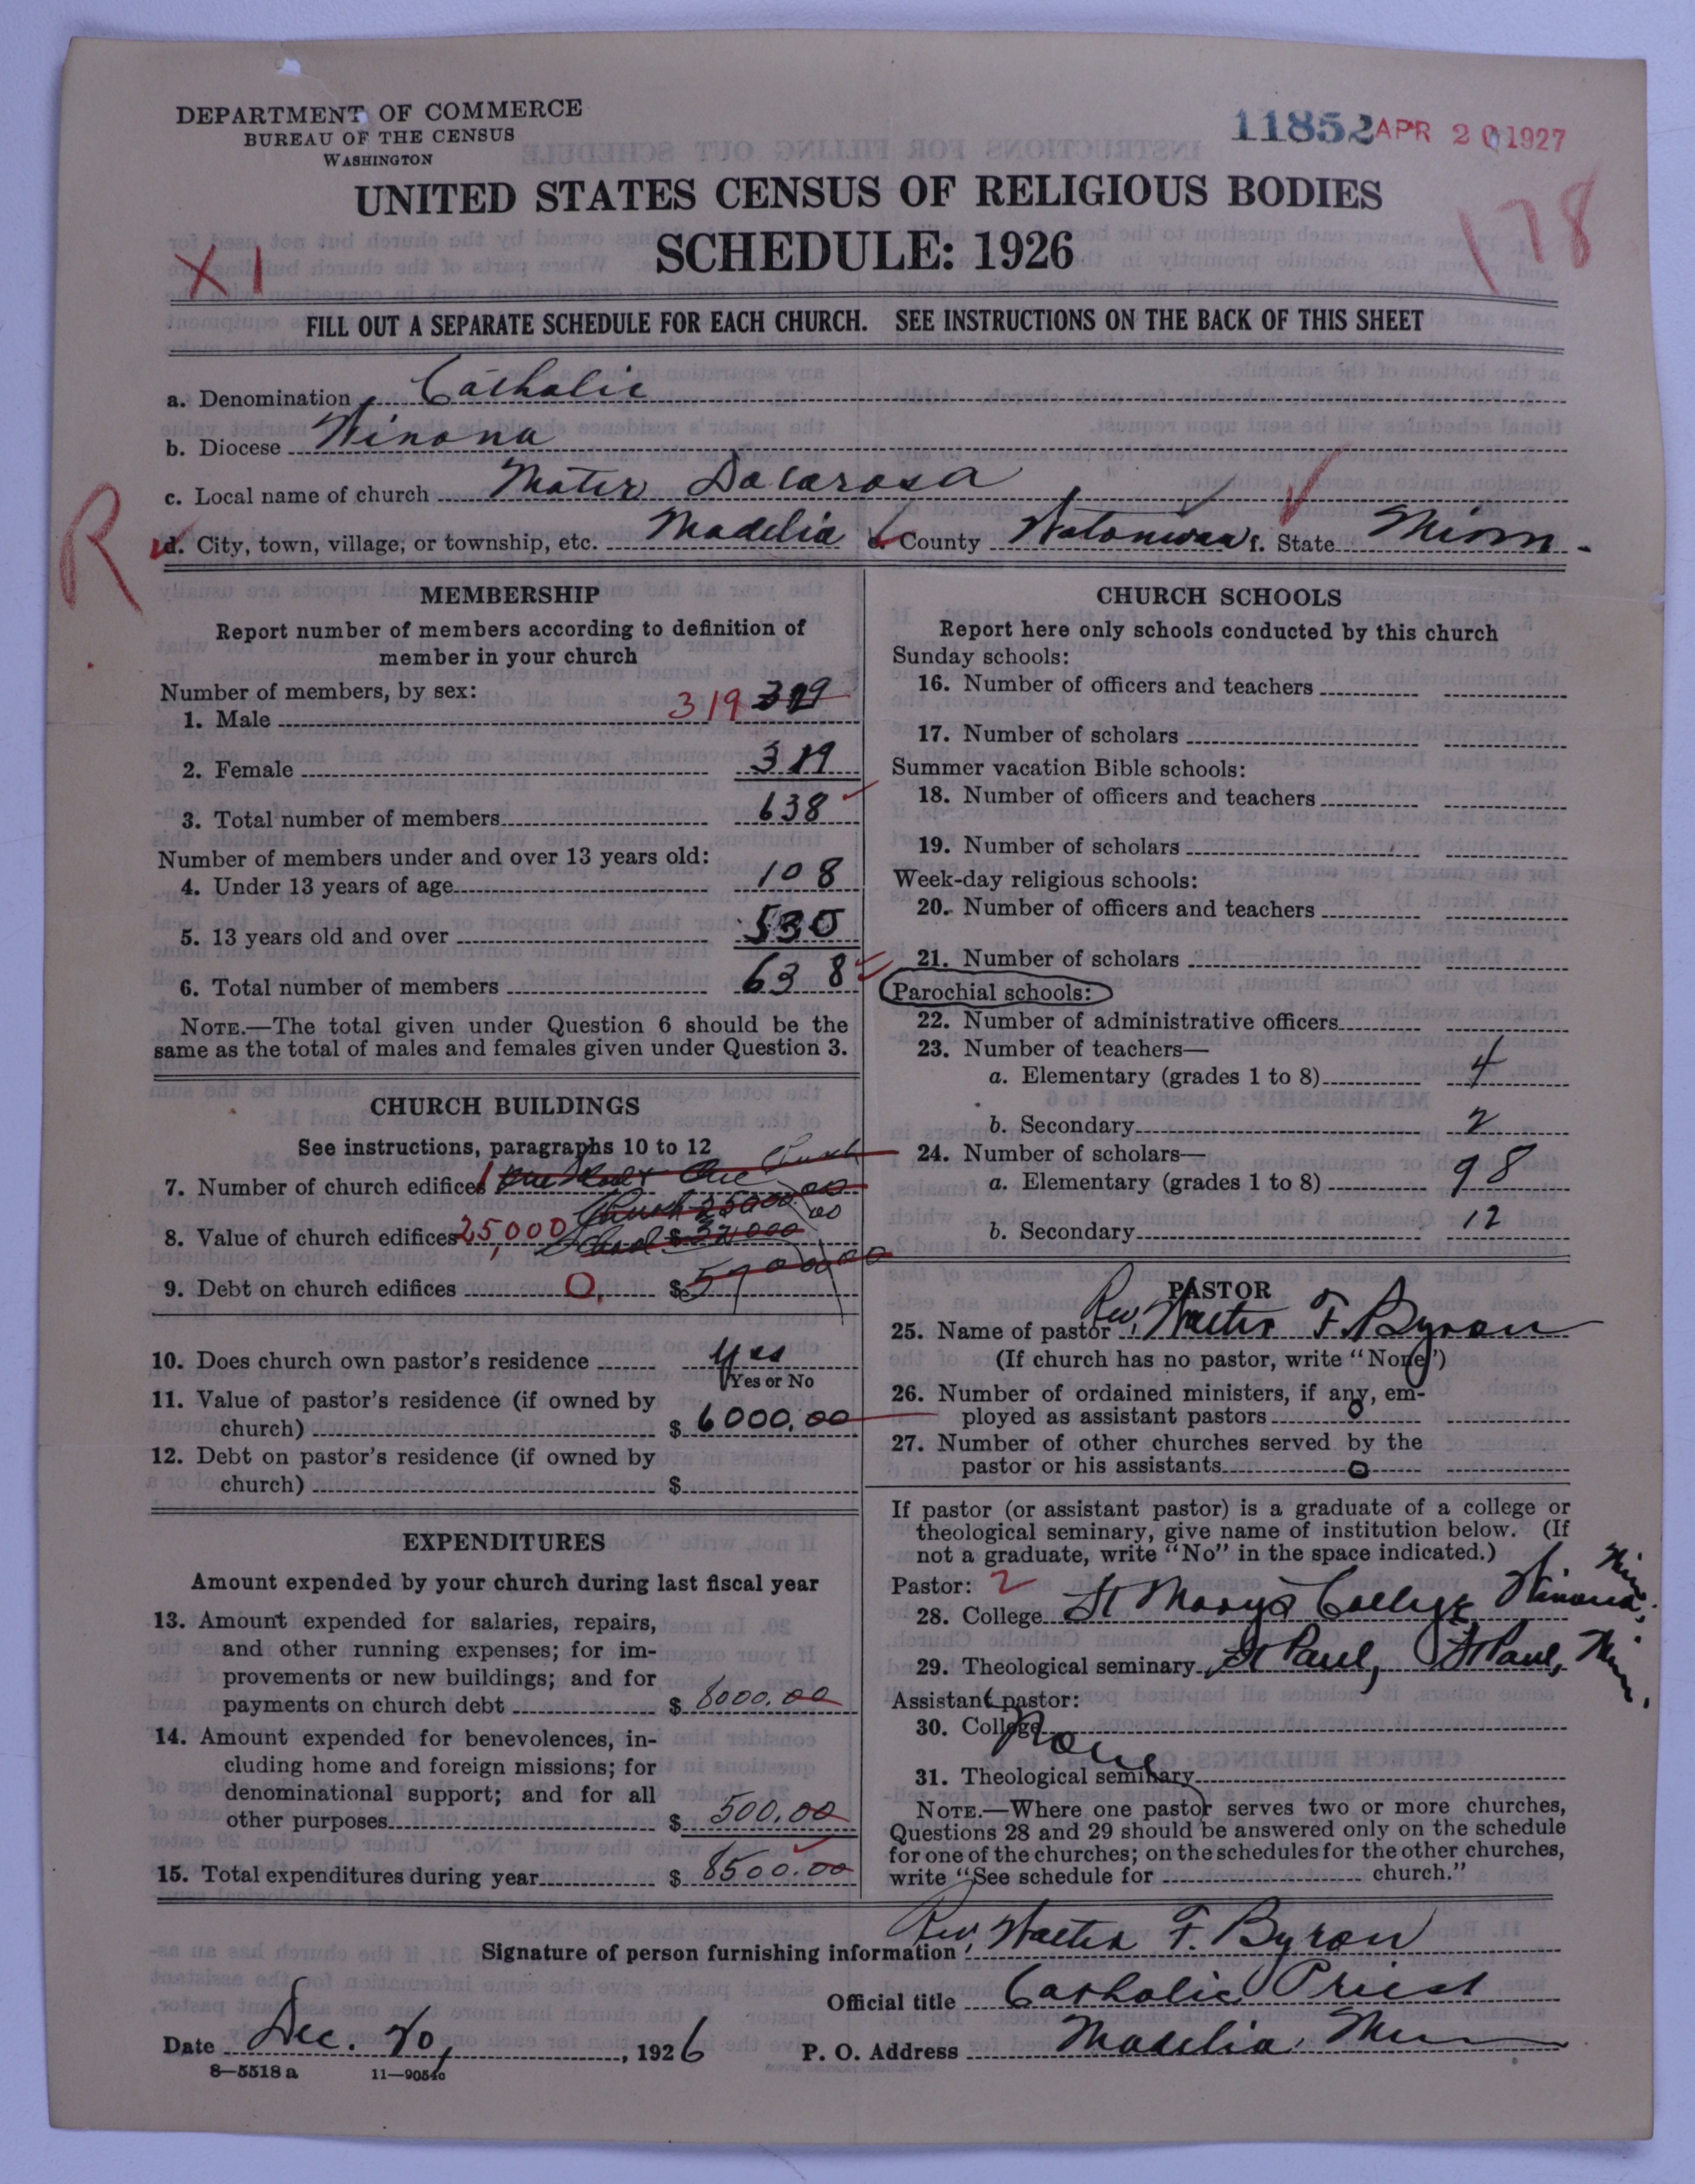 DEPARTMENT OF COMMERCE
BUREAU OF THE CENSUS
WASHINGTON
11852 APR 20 1927
UNITED STATES CENSUS OF RELIGIOUS BODIES
178
SCHEDULE: 1926
XI
FILL OUT A SEPARATE SCHEDULE FOR EACH CHURCH. SEE INSTRUCTIONS ON THE BACK OF THIS SHEET
a. Denomination Catholic
b. Diocese Winona
c. Local name of church Mater Dolarosa
R
d. City, town, village, or township, etc. Madelia e. County Watonwan f. State Minn.
MEMBERSHIP
Report number of members according to definition of
member in your church
Number of members, by sex:
1. Male 319 319
2. Female 319
3. Total number of members 638
Number of members under and over 13 years old:
4. Under 13 years of age 108
5. 13 years old and over 530
6. Total number of members 638
NOTE.—The total given under Question 6 should be the
same as the total of males and females given under Question 3.
CHURCH BUILDINGS
See instructions, paragraphs 10 to 12
7. Number of church edifices 1 One Church
8. Value of church edifices 25,000 Church 25000.00
School $32,000 00
9. Debt on church edifices 0. $ 57000.00
10. Does church own pastor's residence Yes
Yes or No
11. Value of pastor's residence (if owned by
church) $ 6000.00
12. Debt on pastor's residence (if owned by
church) $
EXPENDITURES
Amount expended by your church during last fiscal year
13. Amount expended for salaries, repairs,
and other running expenses; for im-
provements or new buildings; and for
payments on church debt $ 8000.00
14. Amount expended for benevolences, in-
cluding home and foreign missions; for
denominational support; and for all
other purposes $ 500.00
15. Total expenditures during year $ 8500.00
CHURCH SCHOOLS
Report here only schools conducted by this church
Sunday schools:
16. Number of officers and teachers
17. Number of scholars
Summer vacation Bible schools:
18. Number of officers and teachers
19. Number of scholars
Week-day religious schools:
20. Number of officers and teachers
21. Number of scholars
Parochial schools:
22. Number of administrative officers
23. Number of teachers—
a. Elementary (grades 1 to 8) 4
b. Secondary 2
24. Number of scholars—
a. Elementary (grades 1 to 8) 98
b. Secondary 12
PASTOR
25. Name of pastor Rev. Walter F. Byron
(If church has no pastor, write "None")
26. Number of ordained ministers, if any, em-
ployed as assistant pastors 0
27. Number of other churches served by the
pastor or his assistants 0
If pastor (or assistant pastor) is a graduate of a college or
theological seminary, give name of institution below. (If
not a graduate, write "No" in the space indicated.)
Pastor: 2
28. College St Marys College Winona, Minn.
29. Theological seminary St Paul, St Paul, Minn.
Assistant pastor:
30. College None
31. Theological seminary
NOTE.—Where one pastor serves two or more churches,
Questions 28 and 29 should be answered only on the schedule
for one of the churches; on the schedules for the other churches,
write "See schedule for church."
Signature of person furnishing information Rev. Walter F. Byron
Official title Catholic Priest
Date Dec. 20, 1926 P. O. Address Madelia, Minn
8—5518 a 11—9054c